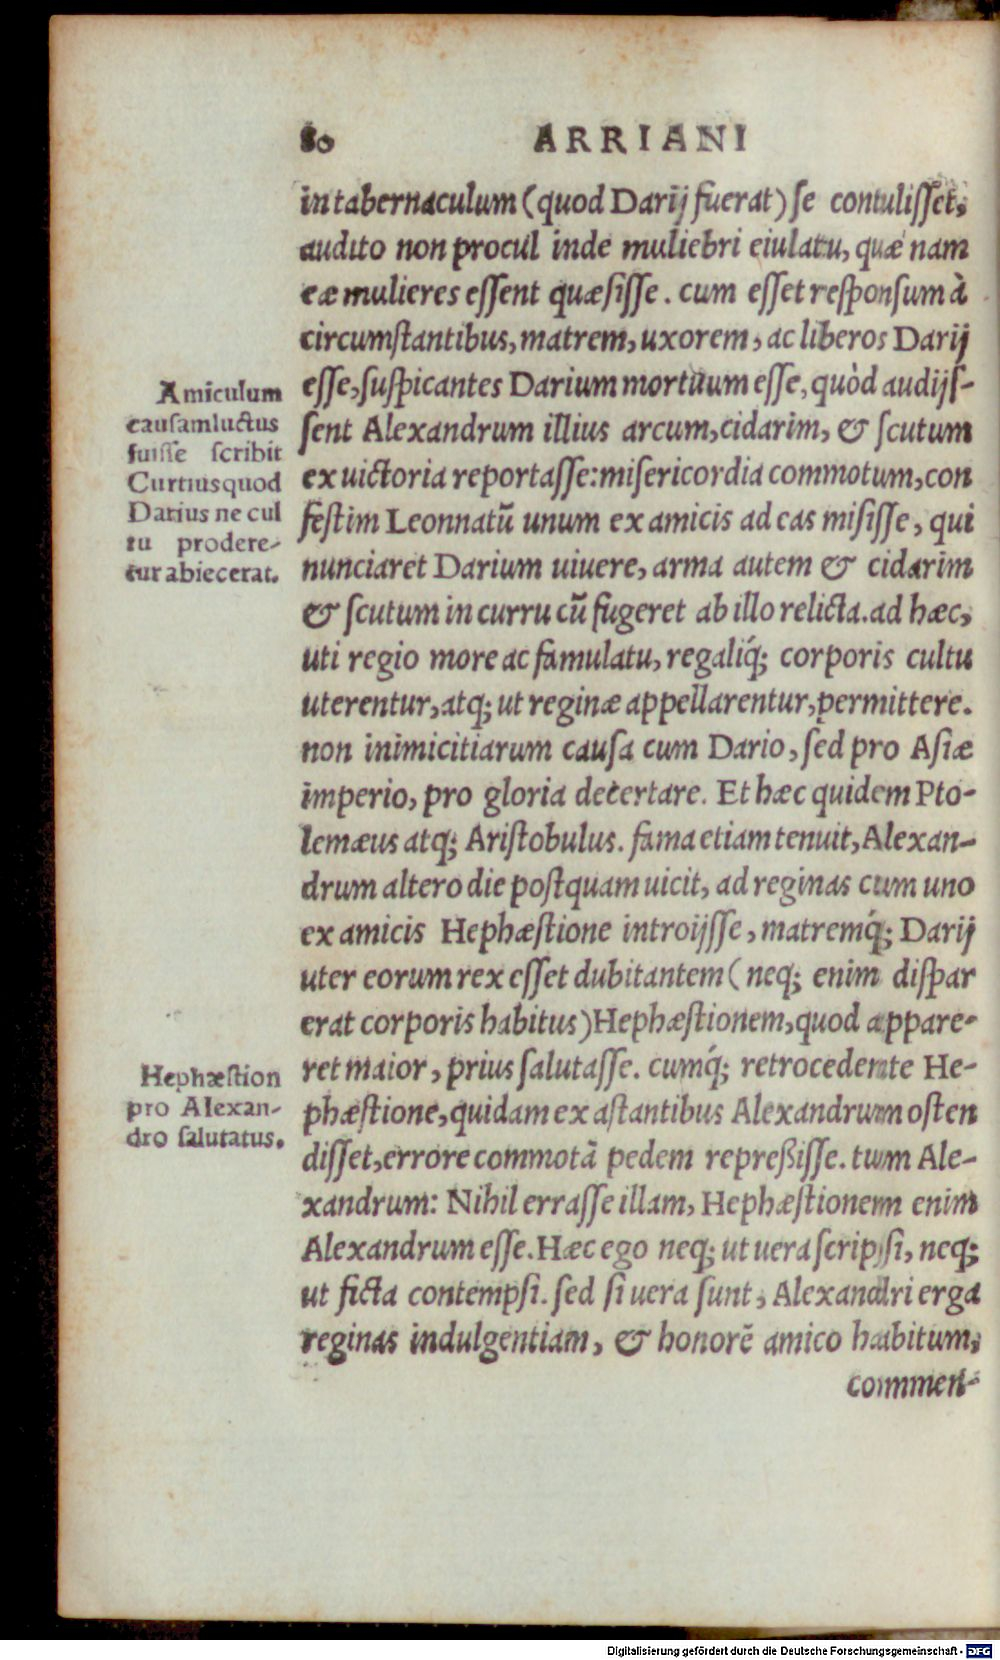 80 ARRIANI
in tabernaculum (quod Darij fuerat) se contulisset,
audito non procul inde muliebri eiulatu, quæ nam
eæ mulieres essent quæsisse. cum esset responsum à
circumstantibus, matrem, uxorem, ac liberos Darij
esse, suspicantes Darium mortuum esse, quòd audijs-
sent Alexandrum illius arcum, cidarim, & scutum
ex uictoria reportasse: misericordia commotum, con
festim Leonnatū unum ex amicis ad eas misisse, qui
nunciaret Darium uiuere, arma autem & cidarim
& scutum in curru cū fugeret ab illo relicta. ad hæc,
uti regio more ac famulatu, regaliq́; corporis cultu
uterentur, atq; ut reginæ appellarentur, permittere.
non inimicitiarum causa cum Dario, sed pro Asiæ
imperio, pro gloria decertare. Et hæc quidem Pto-
lemæus atq; Aristobulus. fama etiam tenuit, Alexan-
drum altero die postquam uicit, ad reginas cum uno
ex amicis Hephæstione introijsse, matremq́; Darij
uter eorum rex esset dubitantem (neq; enim dispar
erat corporis habitus) Hephæstionem, quod appare-
ret maior, prius salutasse. cumq́; retrocedente He-
phæstione, quidam ex astantibus Alexandrum osten
disset, errore commotā pedem repreßisse. tum Ale-
xandrum: Nihil errasse illam, Hephæstionem enim
Alexandrum esse. Hæc ego neq; ut uera scripsi, neq;
ut ficta contempsi. sed si uera sunt, Alexandri erga
reginas indulgentiam, & honorē amico habitum,
commen-
Amiculum
causam luctus
fuisse scribit
Curtius quod
Darius ne cul
tu prodere-
tur abiecerat.
Hephæstion
pro Alexan-
dro salutatus.
Digitalisierung gefördert durch die Deutsche Forschungsgemeinschaft - DFG